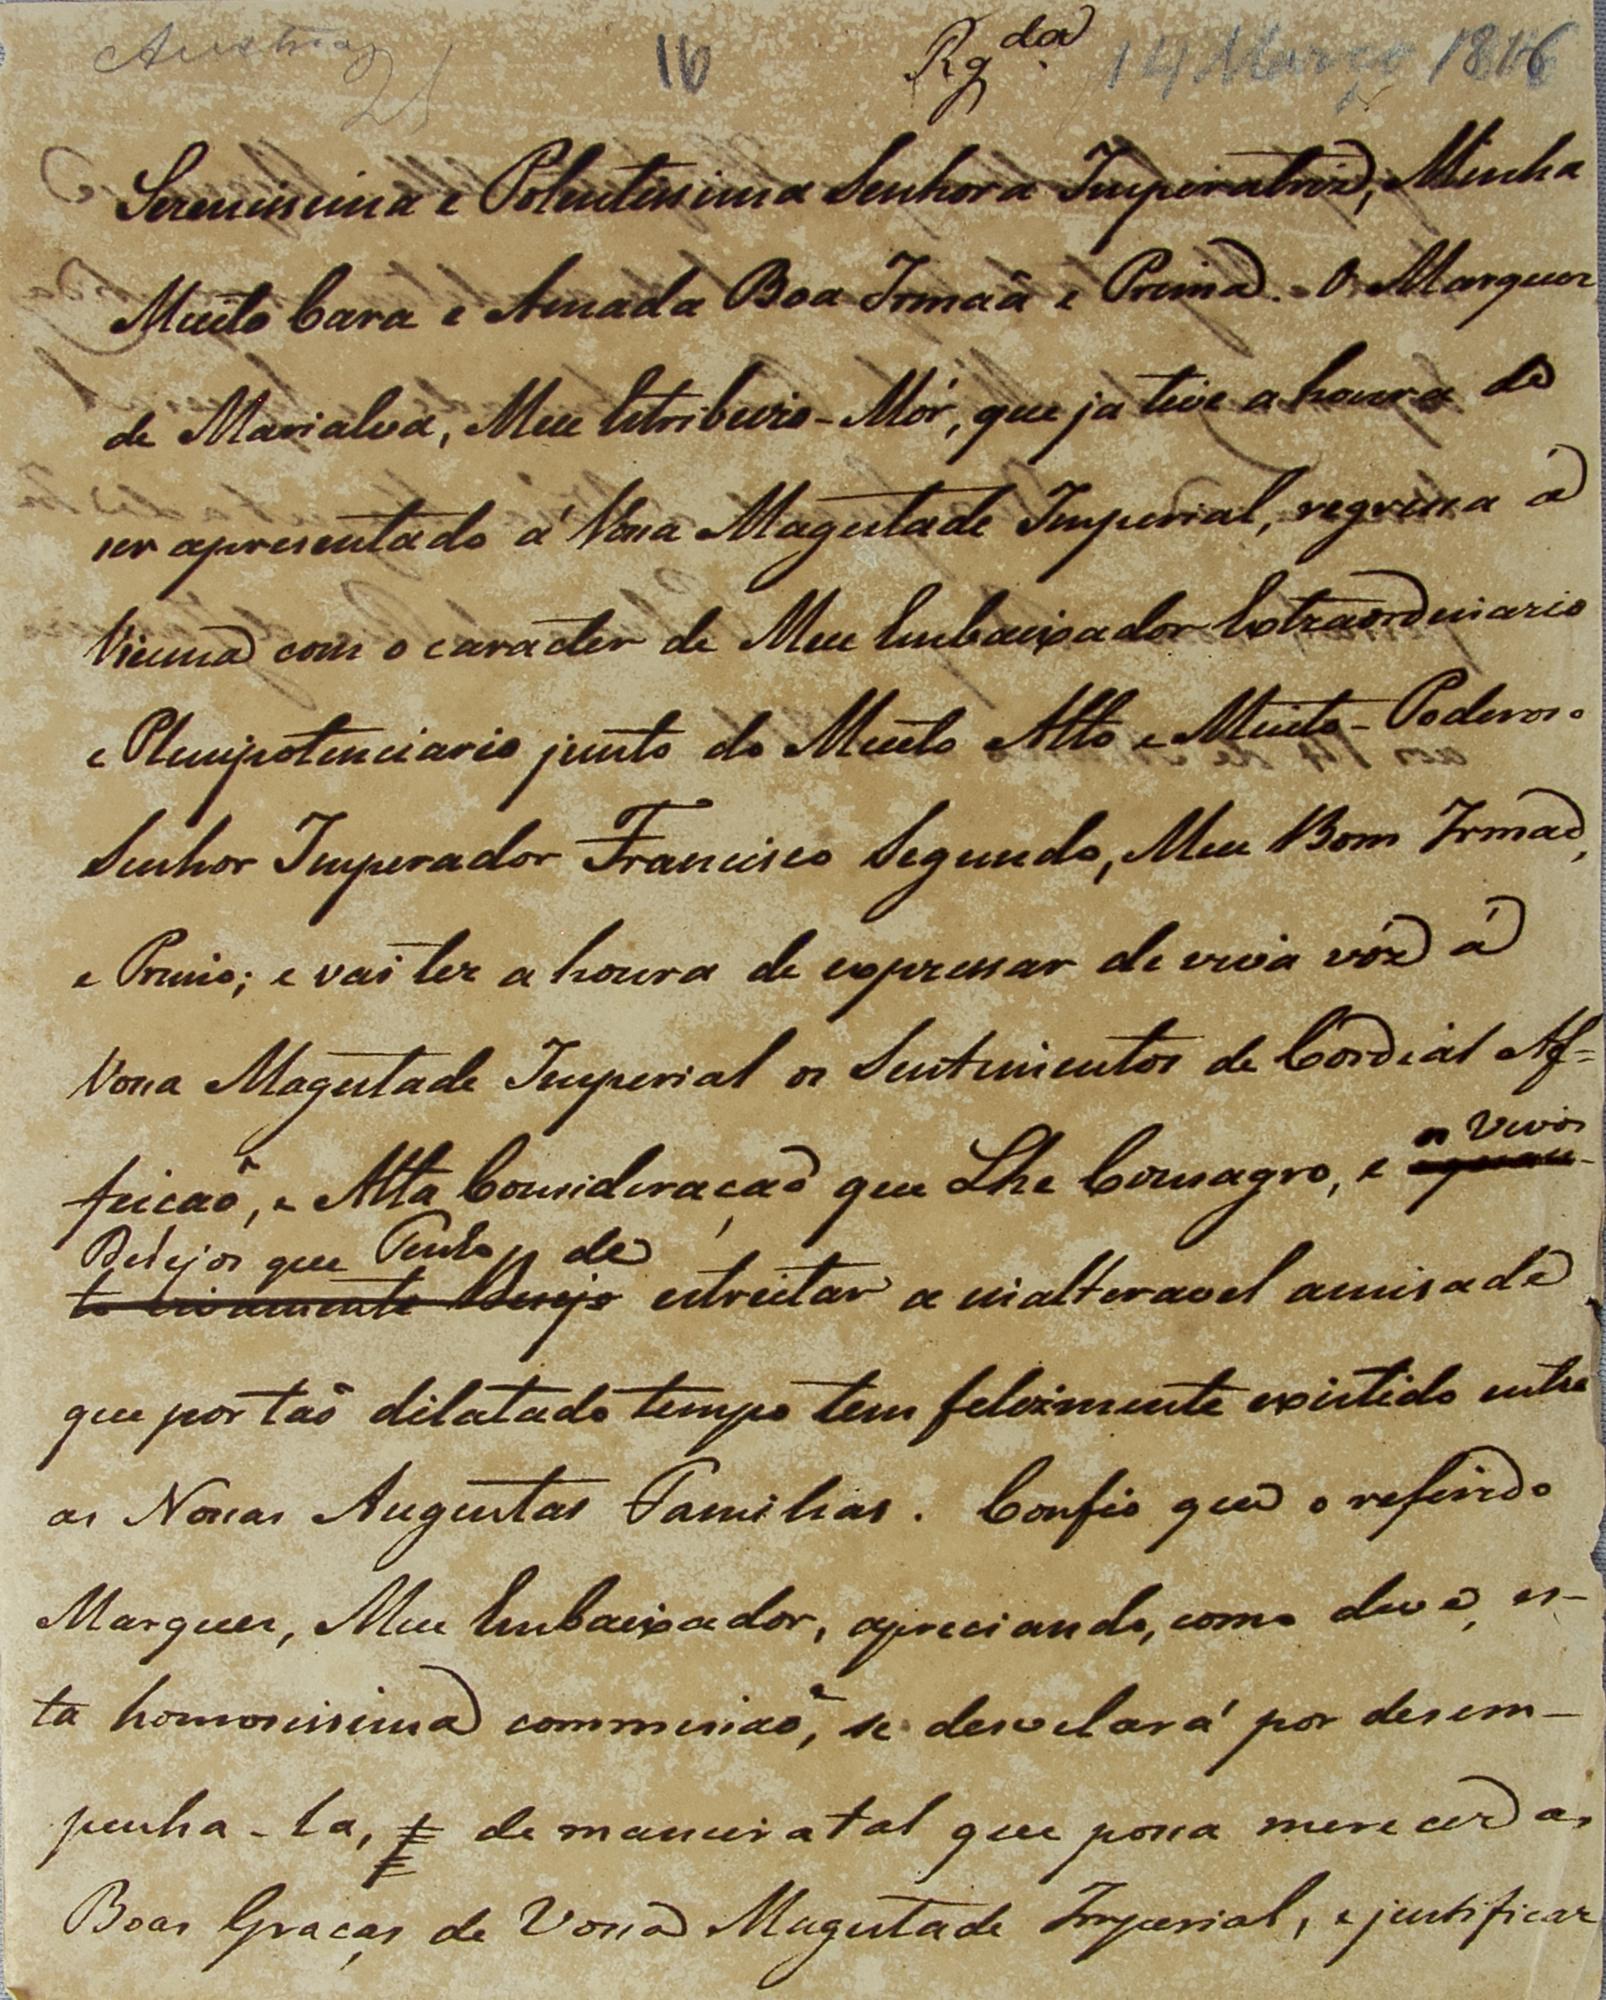 Austria
16
Rg.da
14 Março 1816
Serenissima e Potentissima Senhora Imperatriz, Minha
Muito Cara e Amada Boa Irmaã e Prima. O Marquez
de Marialva, Meu Estribeiro-Mór, que ja teve a honra de
ser apresentado á Vossa Magestade Imperial, regressa á
Vienna com o caracter de Meu Embaixador Extraordinario
e Plenipotenciario junto do Muito Alto e Muito-Poderoso
Senhor Imperador Francisco Segundo, Meu Bom Irmaõ,
e Primo; e vai ter a honra de expressar de viva vóz á
Vossa Magestade Imperial os Sentimentos de Cordial Af=
feicaõ, e Alta Consideraçaõ que Lhe Consagro, e
os vivos
Desejos que Tenho de
to vivamente Desejo estreitar a inalteravel amisade
que por taõ dilatado tempo tem felizmente existido entre
as Nossas Augustas Familias. Confio que o referido
Marquez, Meu Embaixador, apreciando, como deve, es-
ta honrosissima commissaõ, se desvelará por desem-
penha-la, de maneira tal que possa merecer as
Boas Graças de Vossa Magestade Imperial, e justificar